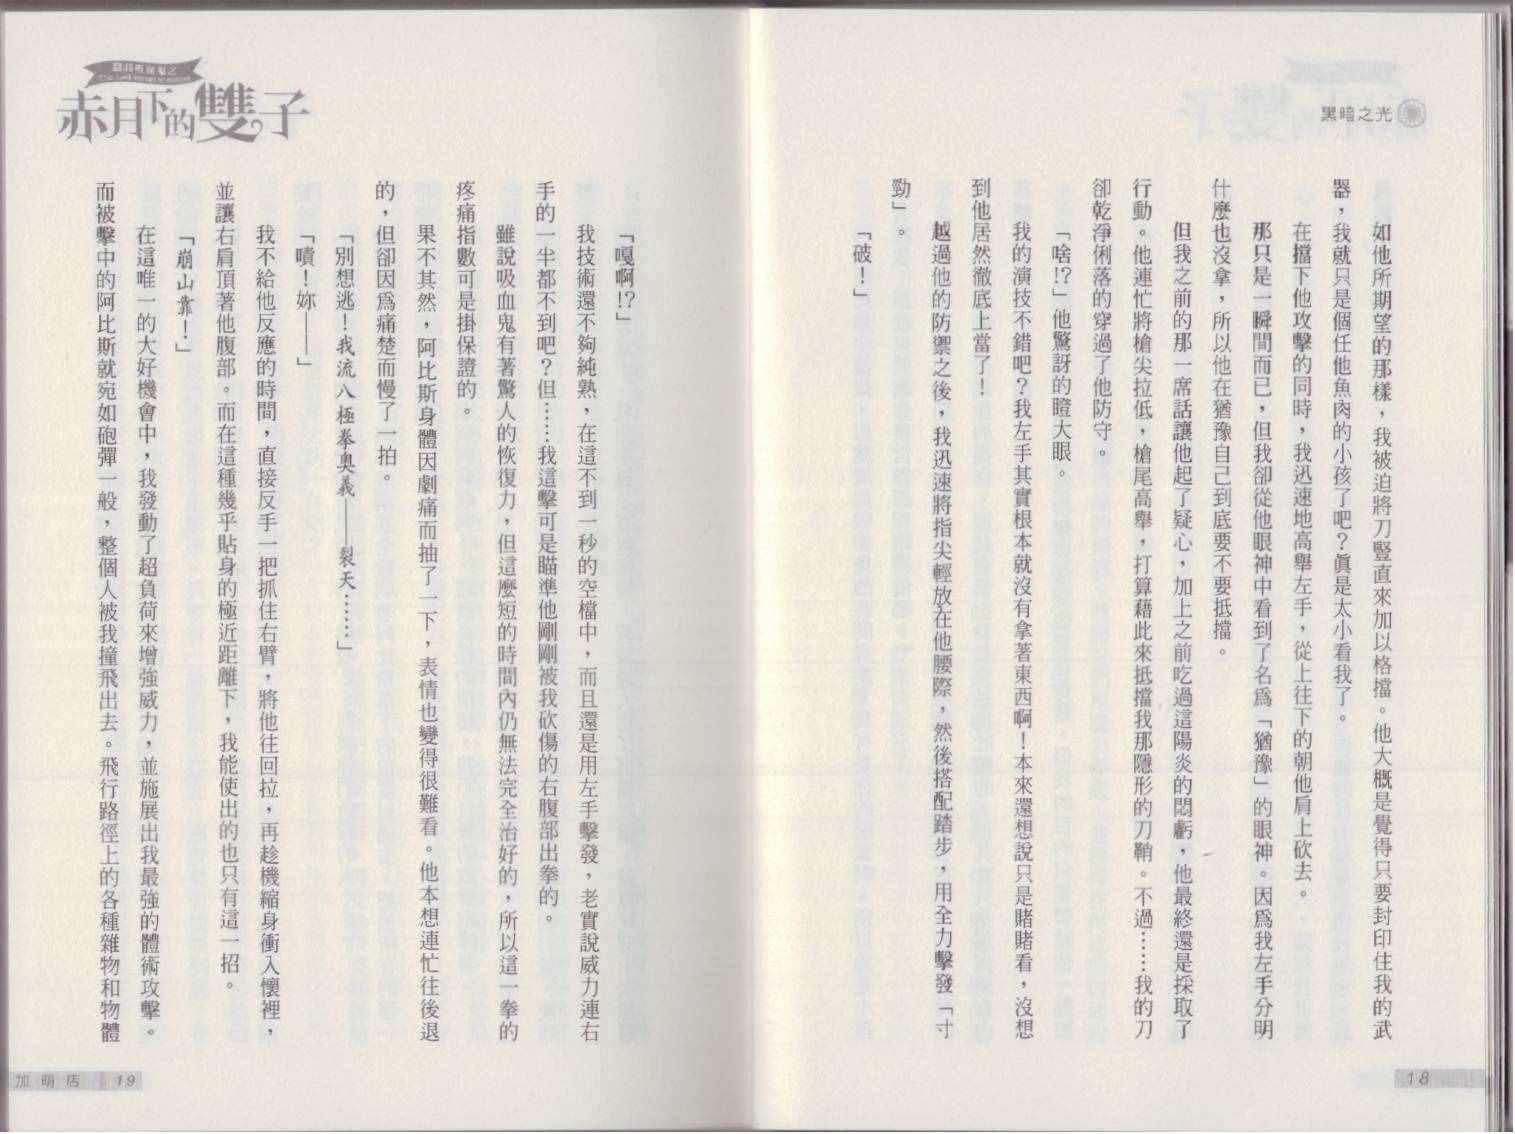 黑暗之光
如他所期望的那樣，我被迫將刀豎直來加以格擋。他大概是覺得只要封印住我的武
器，我就只是個任他魚肉的小孩了吧？真是太小看我了。
在擋下他攻擊的同時，我迅速地高舉左手，從上往下的朝他肩上砍去。
那只是一瞬間而已，但我卻從他眼神中看到了名為「猶豫」的眼神。因為我左手分明
什麼也沒拿，所以他在猶豫自己到底要不要抵擋。
但我之前的那一席話讓他起了疑心，加上之前吃過這陽炎的悶虧，他最終還是採取了
行動。他連忙將槍尖拉低，槍尾高舉，打算藉此來抵擋我那隱形的刀鞘。不過……我的刀
卻乾淨俐落的穿過了他防守。
「啥!?」他驚訝的瞪大眼。
我的演技不錯吧？我左手其實根本就沒有拿著東西啊！本來還想說只是賭賭看，沒想
到他居然徹底上當了！
越過他的防禦之後，我迅速將指尖輕放在他腰際，然後搭配踏步，用全力擊發「寸
勁」。
「破！」
18
赤月下的雙子
「嘎啊!?」
我技術還不夠純熟，在這不到一秒的空檔中，而且還是用左手擊發，老實說威力連右
手的一半都不到吧？但……我這擊可是瞄準他剛剛被我砍傷的右腹部出拳的。
雖說吸血鬼有著驚人的恢復力，但這麼短的時間內仍無法完全治好的，所以這一拳的
疼痛指數可是掛保證的。
果不其然，阿比斯身體因劇痛而抽了一下，表情也變得很難看。他本想連忙往後退
的，但卻因為痛楚而慢了一拍。
「別想逃！我流八極拳奧義——裂天……」
「嘖！妳——」
我不給他反應的時間，直接反手一把抓住右臂，將他往回拉，再趁機縮身衝入懷裡，
並讓右肩頂著他腹部。而在這種幾乎貼身的極近距離下，我能使出的也只有這一招。
「崩山靠！」
在這唯一的大好機會中，我發動了超負荷來增強威力，並施展出我最強的體術攻擊。
而被擊中的阿比斯就宛如砲彈一般，整個人被我撞飛出去。飛行路徑上的各種雜物和物體
加明店 19